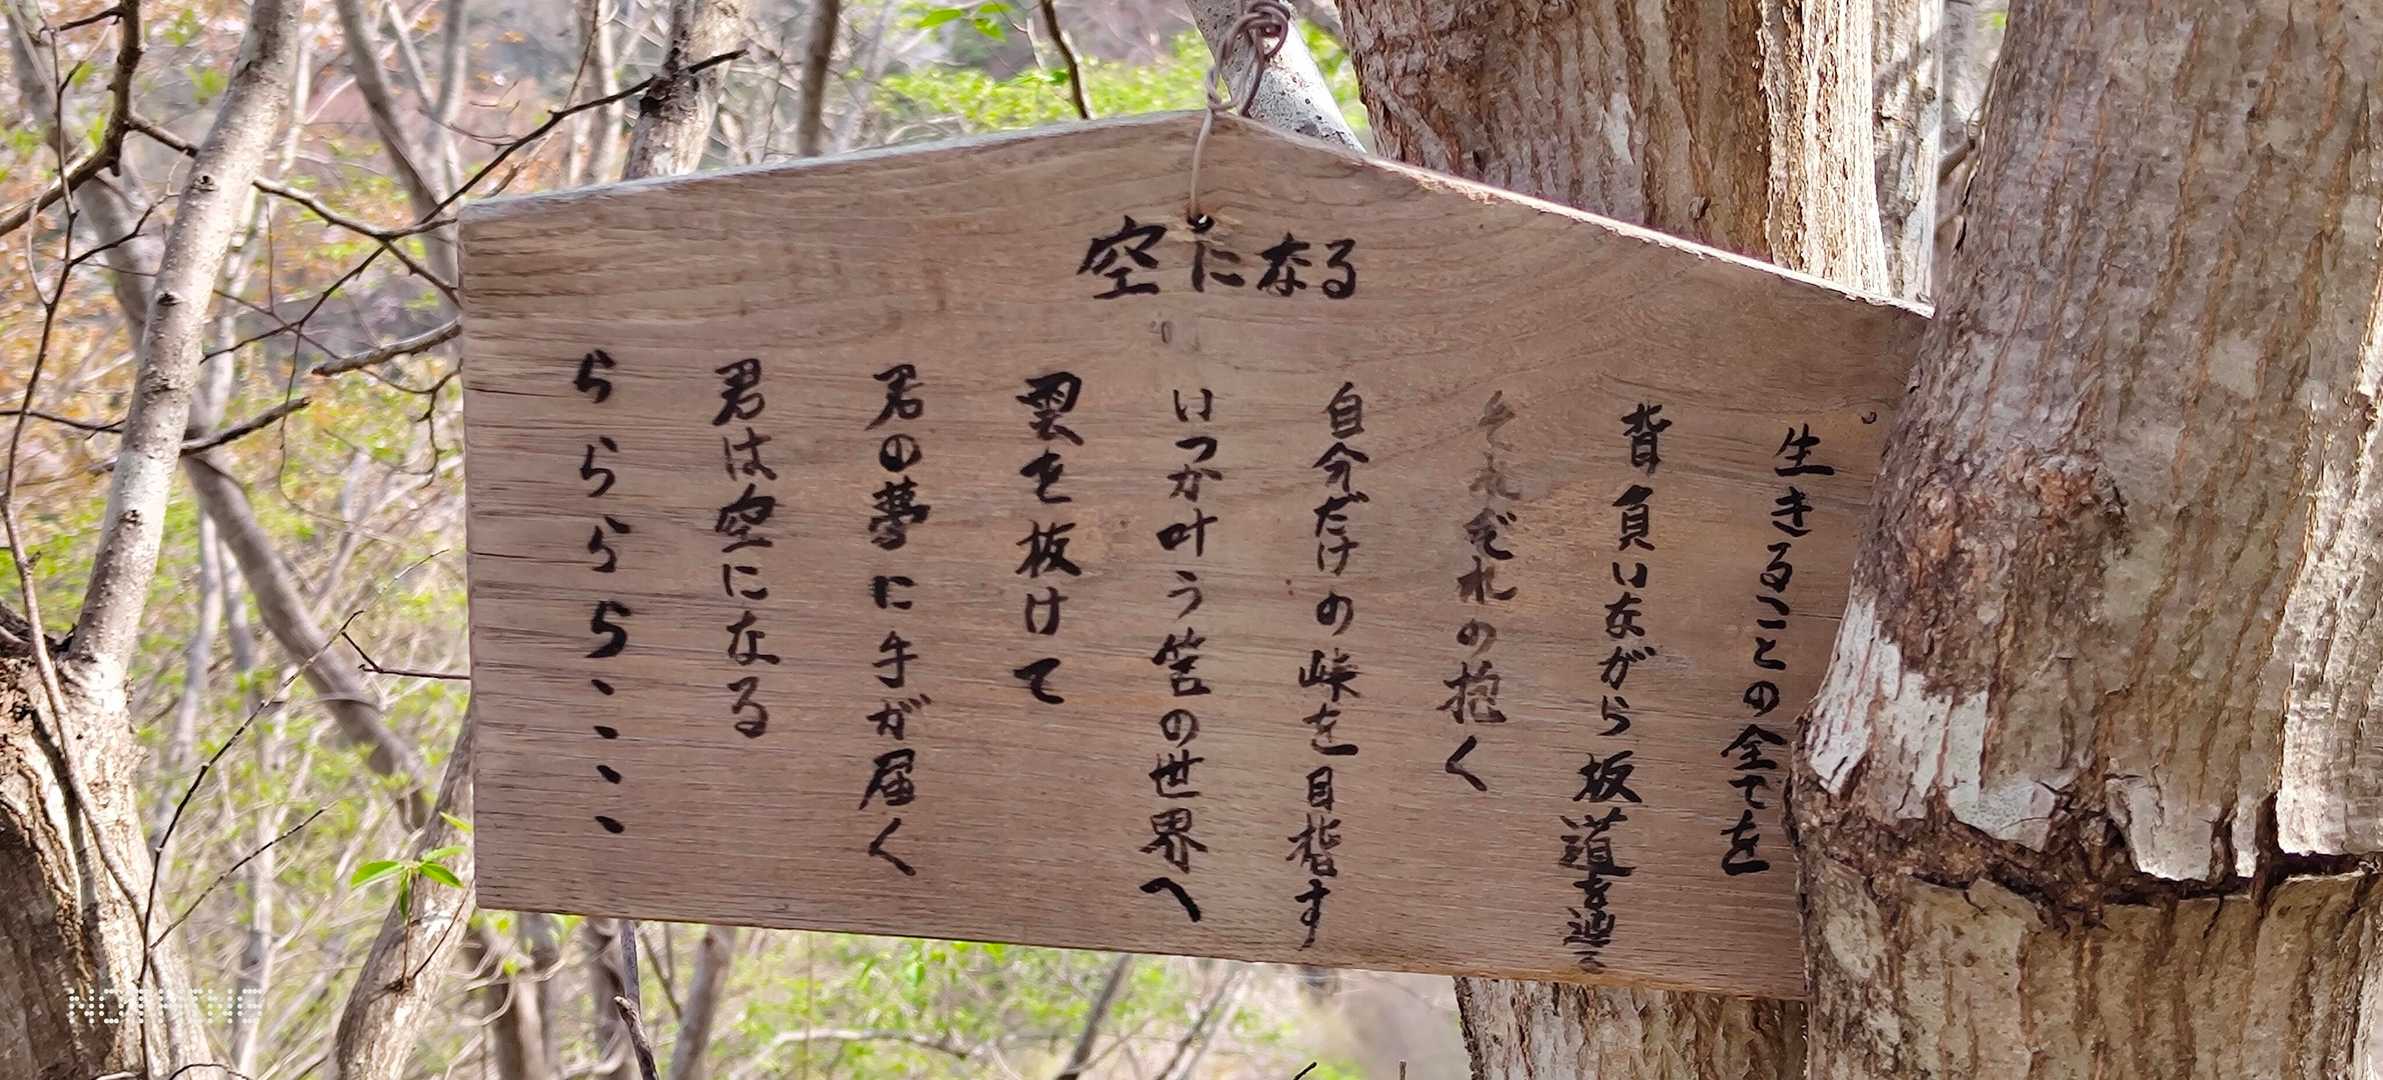 空になる
生きることの全てを
背負いながら坂道を通る
それぞれの抱く
自分だけの峠を目指す
いつか叶う筈の世界へ
雲を抜けて
君の夢に手が届く
君は空になる
ららららヽヽヽヽ
NOTHING